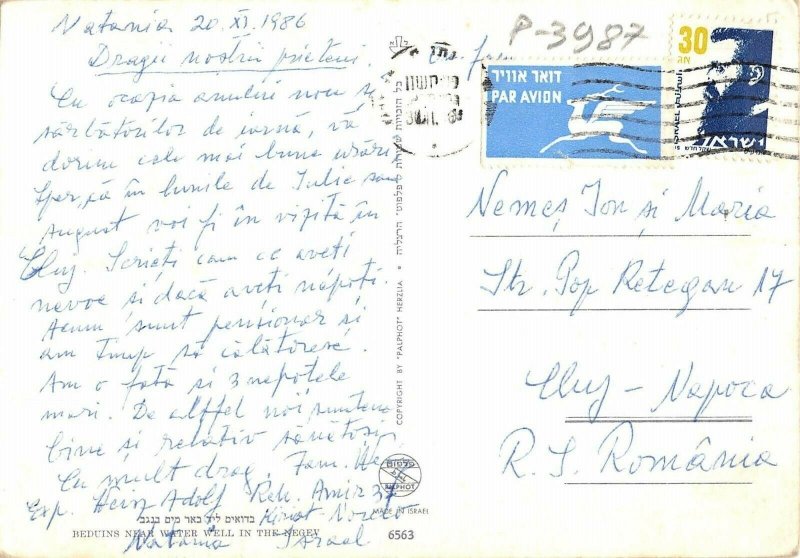 Natania 20 XI. 1986
Dragii noștrii prieteni.
Cu ocazia anului nou și
sărbătorilor de iarnă, vă
dorim cele mai bune urări
Sper, că în lunile de Iulie sau
August voi fi în vizită în
Cluj. Scrieți cam ce aveți
nevoe și dacă aveți nepoți.
Acum sunt pensionar și
am timp să călătoresc.
Am o fată și 3 nepotele
mari. De altfel noi suntem
bine și relativ sănătoși
Cu mult drag, Fam.
Exp. Heinz Adolf Reh. Amir 37
Natania Israel
בדואים ליד באר מים בנגב
BEDUINS NEAR WATER WELL IN THE NEGEV
6563
MADE IN ISRAEL
פלפוט
PALPHOT
COPYRIGHT BY "PALPHOT" HERZLIA • כל הזכויות שמורות ל"פלפוט" הרצליה
P-3987
דואר אוויר
PAR AVION
30
ISRAEL
ישראל
Nemeș Ion și Maria
Str. Pop Retegan 17
Cluj - Napoca
R. S. România